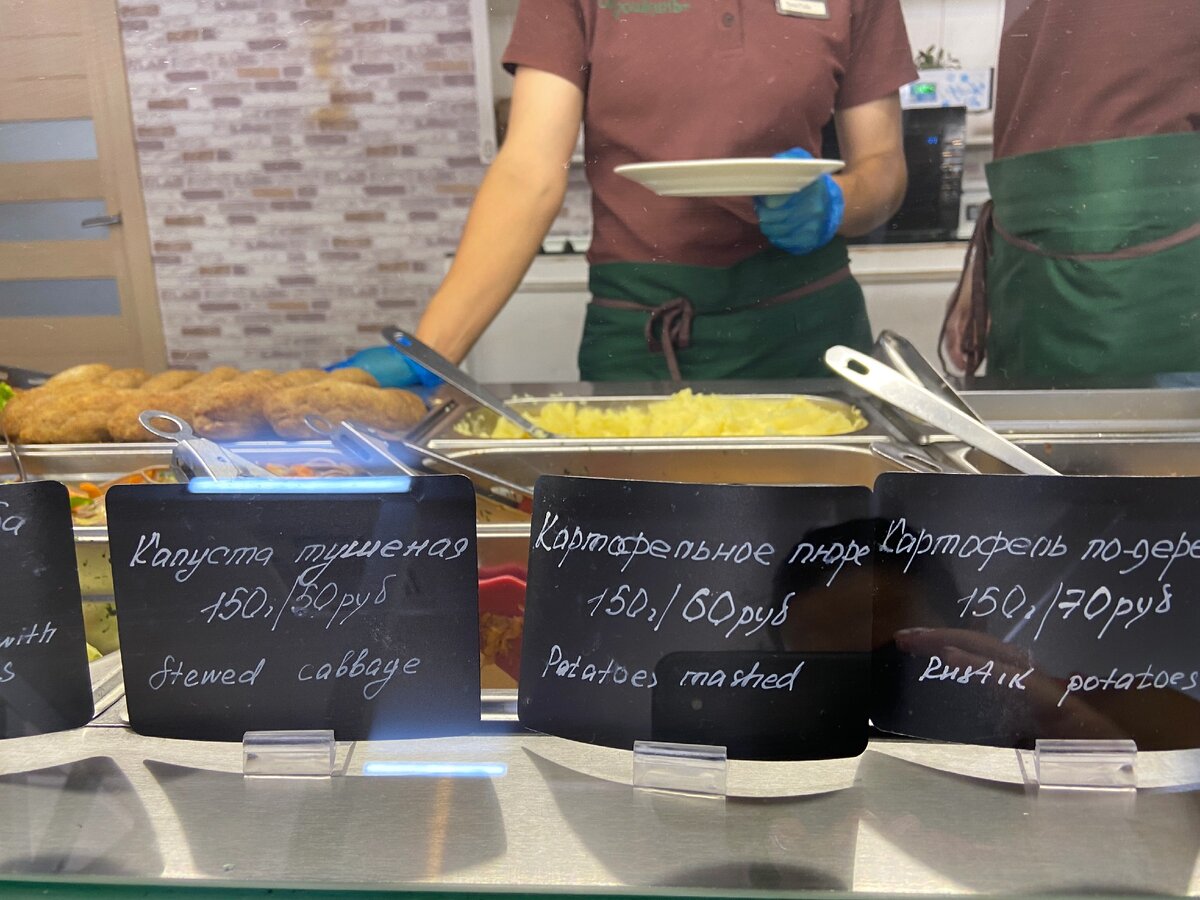 ба
with
s
Капуста тушеная
150г/50руб
Stewed cabbage
Картофельное пюре
150г/60руб
Potatoes mashed
Картофель по-дере
150г/70руб
Rustik potatoes